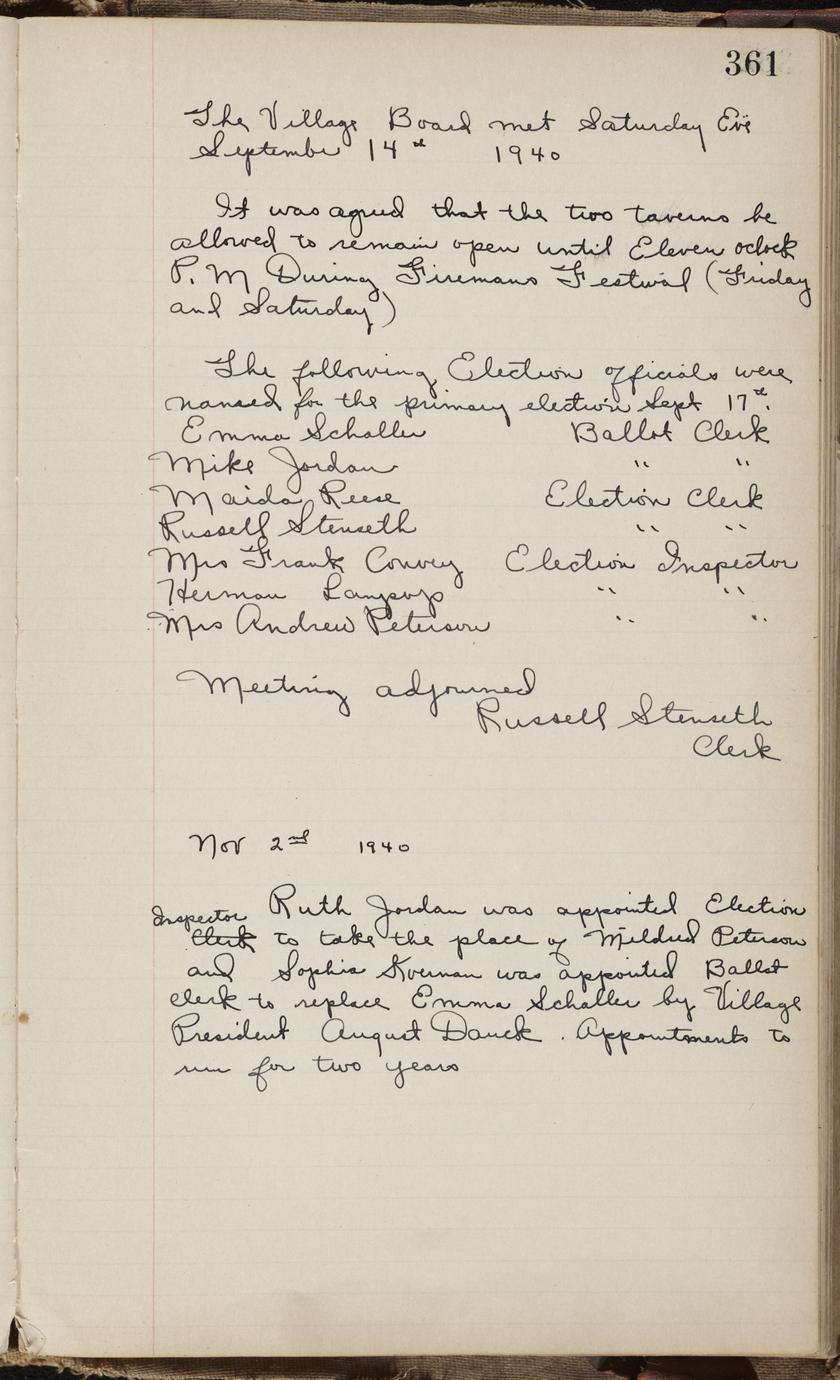 361
The Village Board met Saturday Eve
September 14th 1940
It was agreed that the two taverns be
allowed to remain open until Eleven oclock
P.M During Firemans Festival (Friday
and Saturday)
The following Election officials were
named for the primary election Sept 17th.
Emma Schaller Ballot Clerk
Mike Jordan " "
Maida Reese Election Clerk
Russell Stenseth " "
Mrs Frank Convey Election Inspector
Herman " "
Mrs Andrew Peterson " "
Meeting adjourned
Russell Stenseth
Clerk
Nov 2nd 1940
Ruth Jordan was appointed Election
Inspector Clerk to take the place of Mildred Peterson
and Sophia was appointed Ballot
clerk to replace Emma Schaller by Village
President August Dauck. Appointments to
run for two years